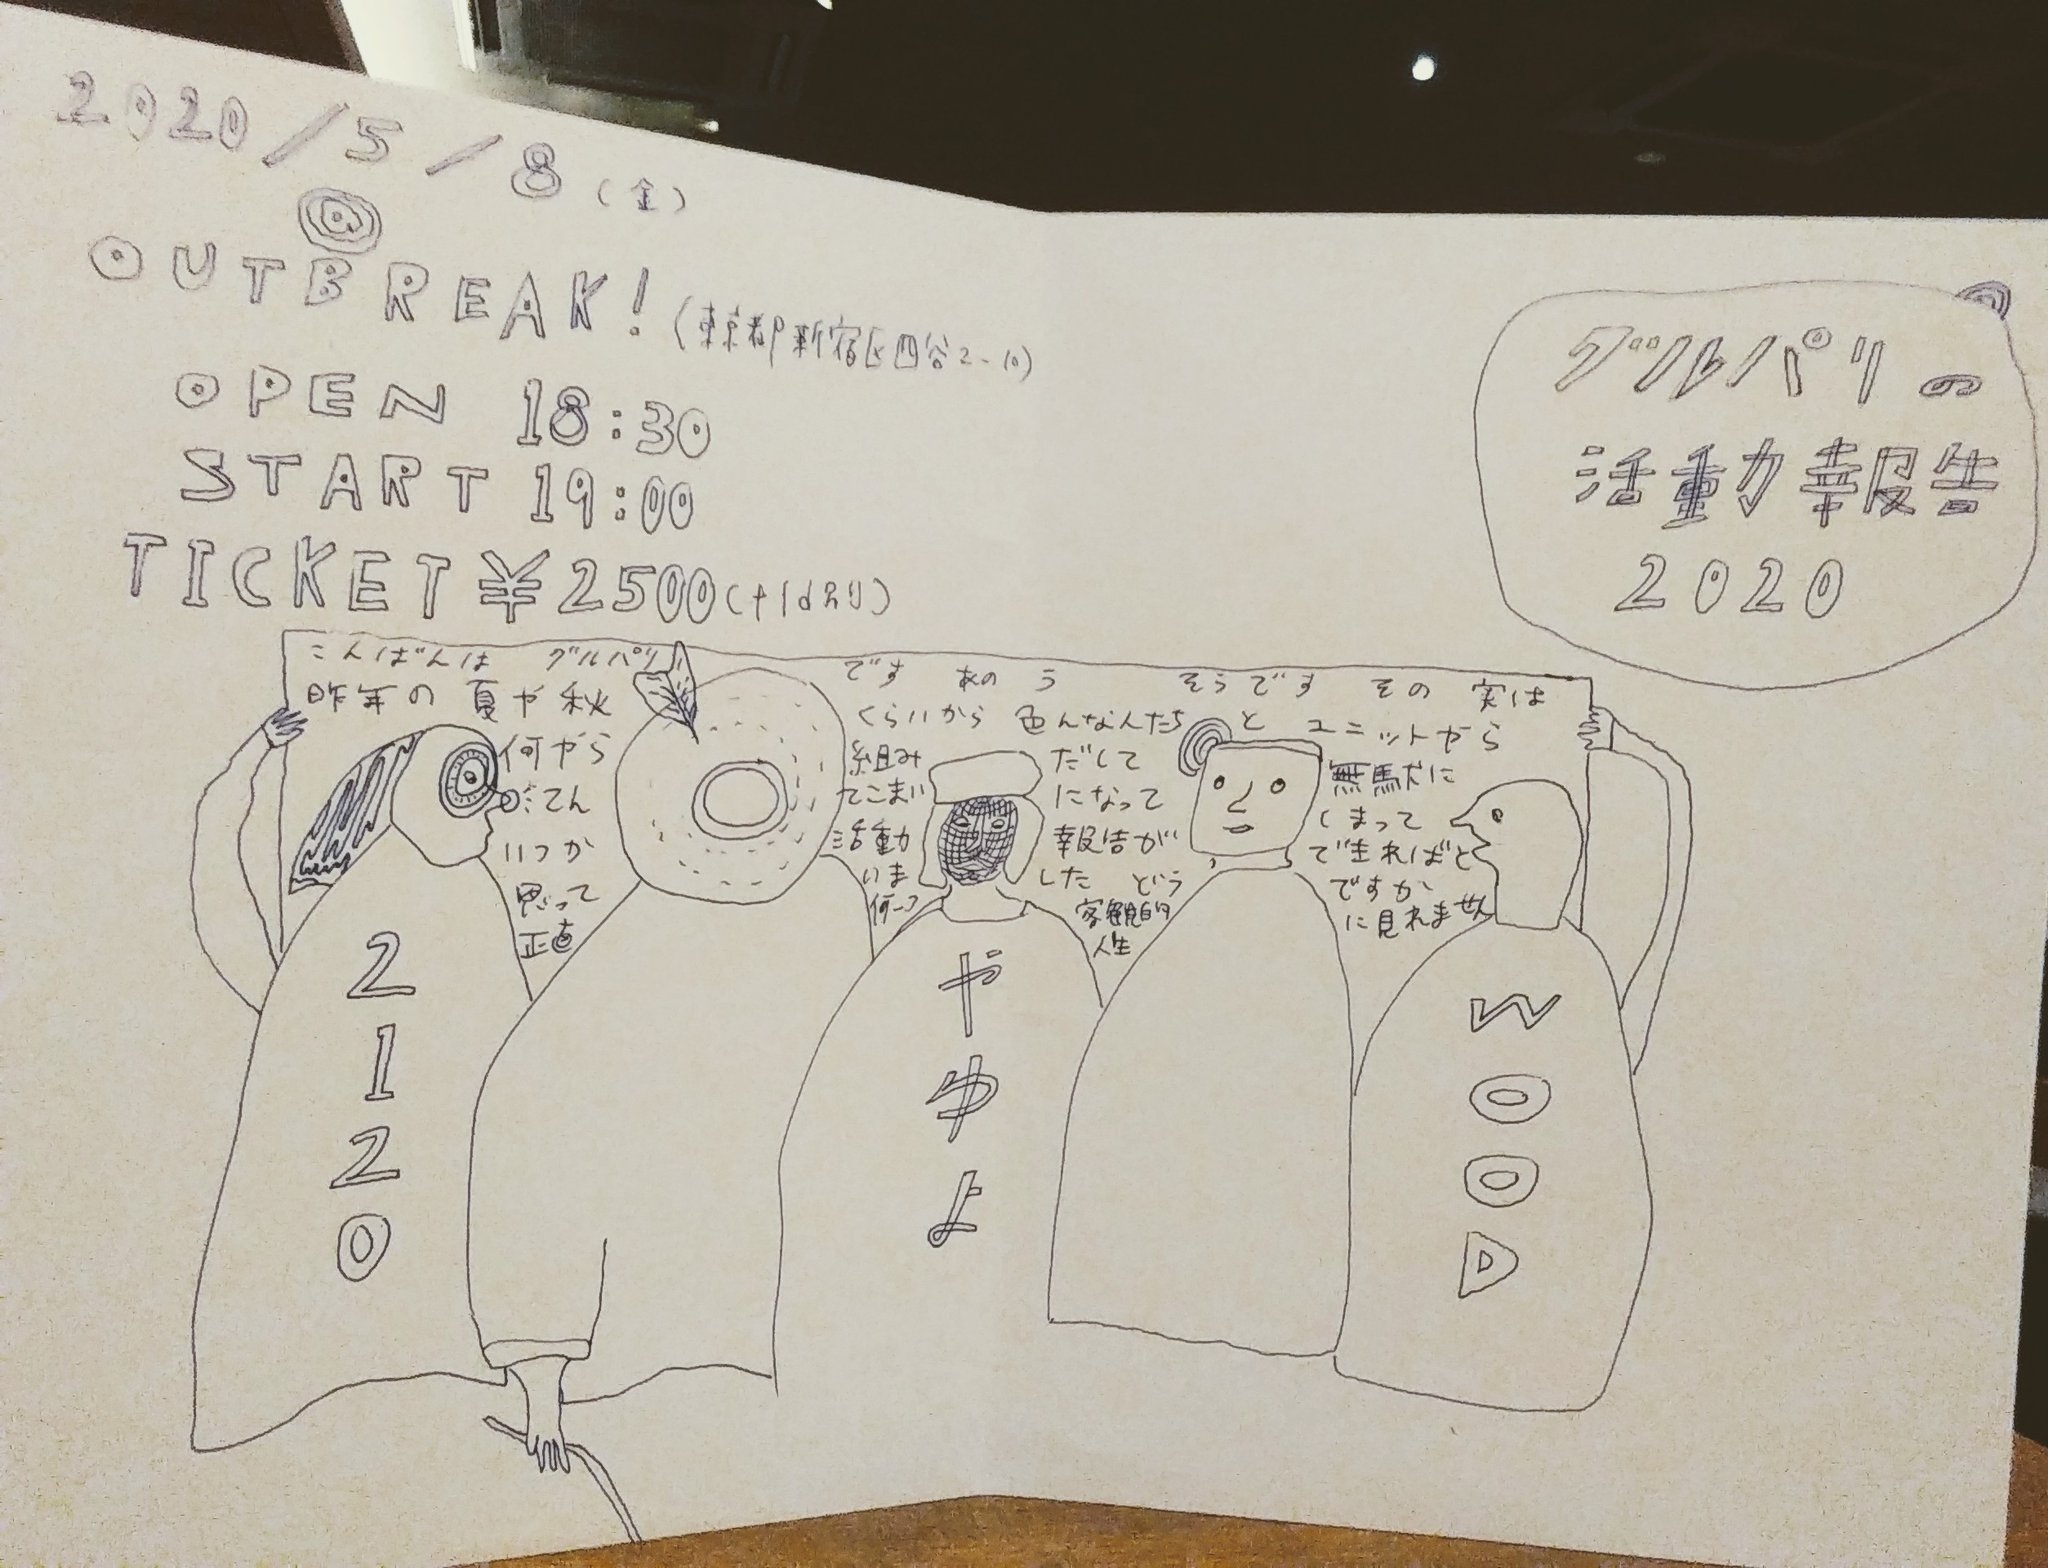 2020/5/8(金)
@
OUTBREAK!(東京都新宿区四谷2-10)
OPEN 18:30
START 19:00
TICKET ¥2500(+1d
グルパリの
活動報告
2020
こんばんは グルパリ です あのう そうです その 実は
昨年の 夏や秋 くらいから 色んな人たち と ユニットやら
何やら 組み だして 無駄に
てん てこまい になって しまって
いつか 活動 報告が できればと
思って いま した どう ですか
正直 何一つ 客観的 に見れません
人生
2120
やゆよ
WOOD